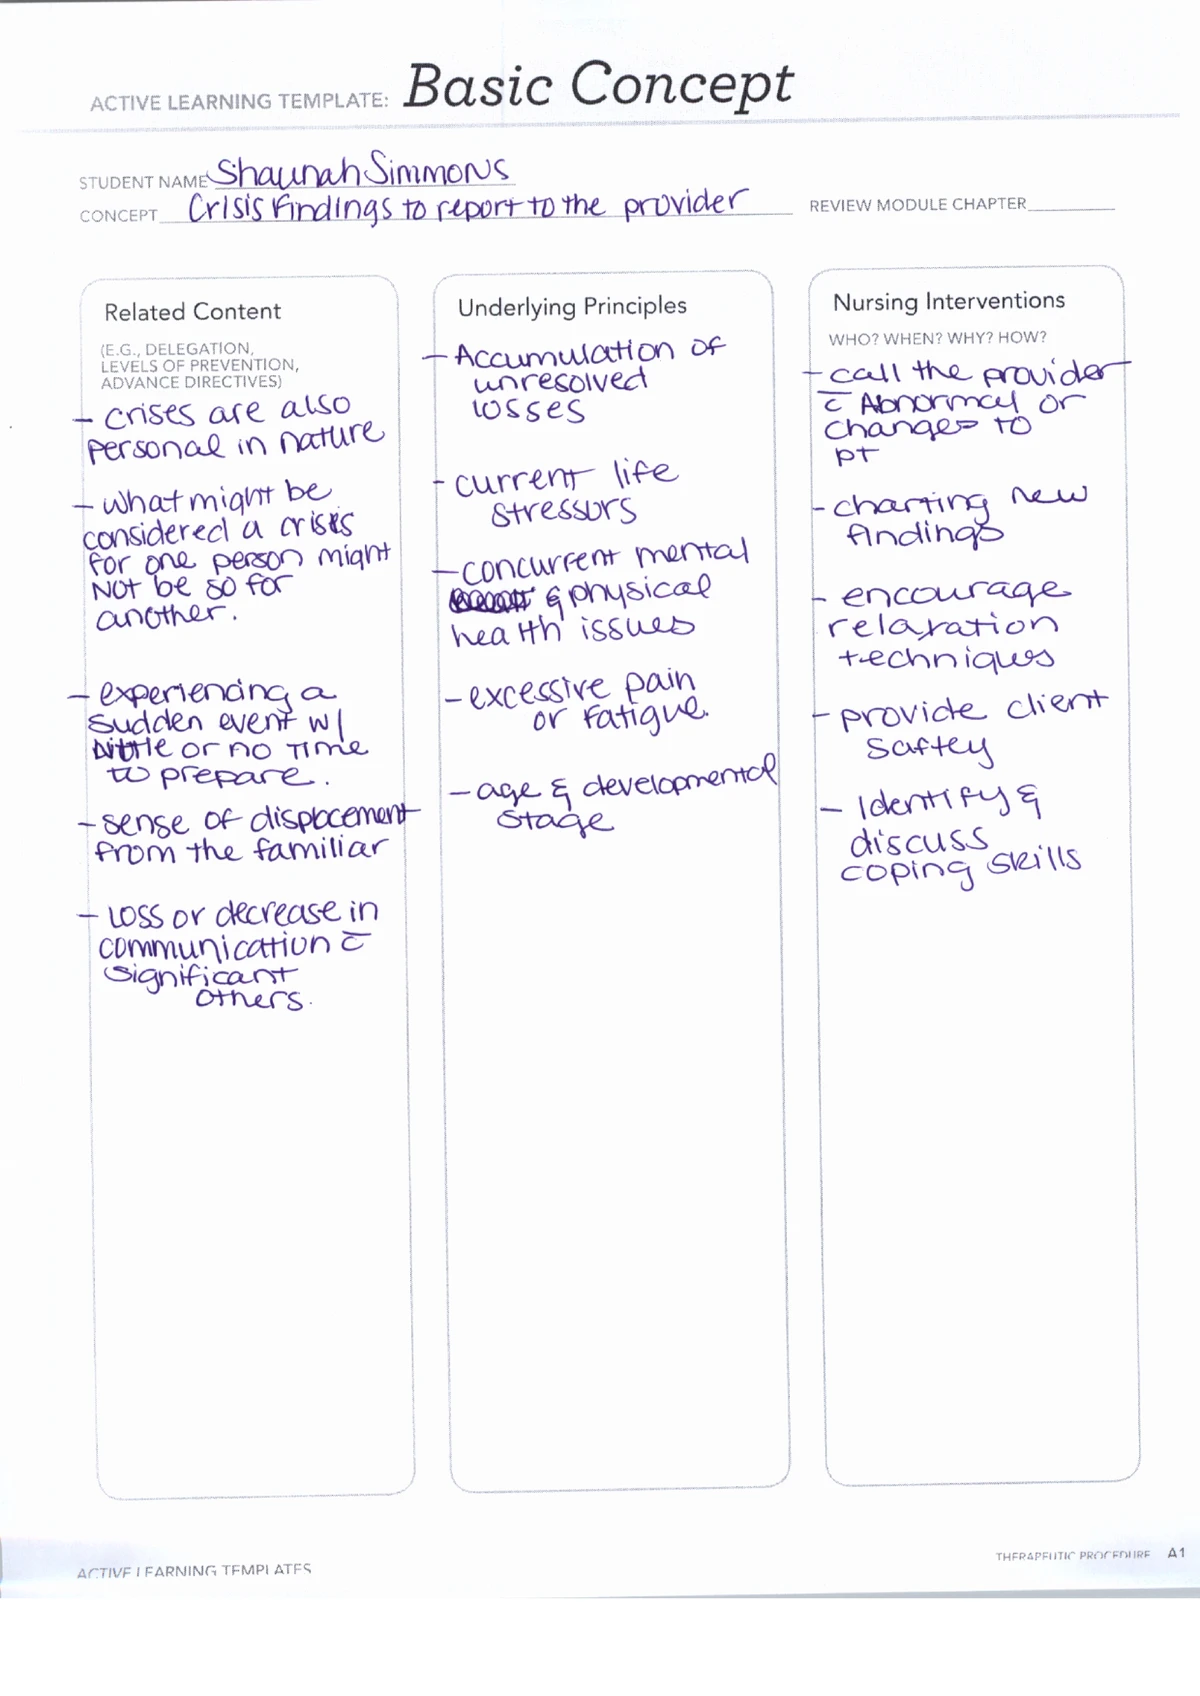 ACTIVE LEARNING TEMPLATE: Basic Concept
STUDENT NAME Shaunah Simmons
CONCEPT Crisis Findings to report to the provider
REVIEW MODULE CHAPTER
Related Content
(E.G., DELEGATION,
LEVELS OF PREVENTION,
ADVANCE DIRECTIVES)
- crises are also
personal in nature
- what might be
considered a crisis
for one person might
Not be so for
another.
- experiencing a
sudden event w/
little or no Time
to prepare.
- sense of displacement
from the familiar
- loss or decrease in
communication c̄
significant
others.
Underlying Principles
- Accumulation of
unresolved
losses
- current life
stressors
- concurrent mental
& physical
health issues
- excessive pain
or fatigue.
- age & developmental
stage
Nursing Interventions
WHO? WHEN? WHY? HOW?
- call the provider
c̄ Abnormal or
changes to
pt
- charting new
findings
- encourage
relaxation
techniques
- provide client
saftey
- Identify &
discuss
coping skills
ACTIVE LEARNING TEMPLATES
THERAPEUTIC PROCEDURE A1